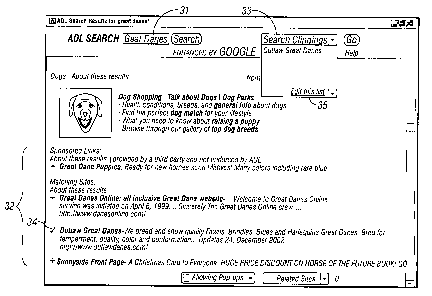 31
33
AOL Search Results for "great danes"
AOL SEARCH Great Danes Search
Search Clippings Go
ENHANCED BY GOOGLE
Outlaw Great Danes
Help
Dogs About these results
Edit this list
35
Dog Shopping Talk about Dogs | Dog Parks
- Health, conditions, breeds, and general info about dogs
- Find the perfect dog match for your lifestyle
- What you need to know about raising a puppy
- Browse through our gallery of top dog breeds
Sponsored Links:
About these results | provided by a third party and not endorsed by AOL
Great Dane Puppies, Ready for new homes soon Midwest Many colors including rare blue
Matching Sites:
About these results
32
Great Danes Online: all inclusive Great Dane website- Welcome to Great Danes Online
was initiated on April 6, 1999. ... Sincerely The Great Danes Online crew ...
http://www.danesonline.com/
34
Outlaw Great Danes-We breed and show quality Fawns, Brindles, Blues and Harlequins Great Danes. Bred for
temperament, quality, color and conformation... Updated 24, December 2002
Sunnyside Front Page- A Christmas Card to Everyone. HUGE PRICE DISCOUNT ON HORSE OF THE FUTURE BOOK! GO
Allowing Pop-ups
Related Sites
0